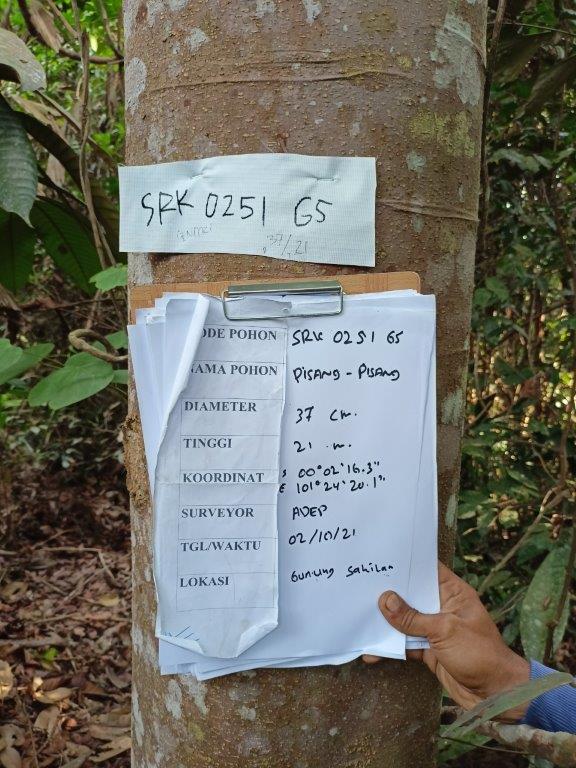 SRK 0251 G5
37/21
ODE POHON SRK 0251 G5
NAMA POHON PISANG - PISANG
DIAMETER 37 cm.
TINGGI 21 m.
KOORDINAT S 00°02'16.3"
E 101°24'20.1"
SURVEYOR ADEP
TGL/WAKTU 02/10/21
LOKASI Gunung Sahilan